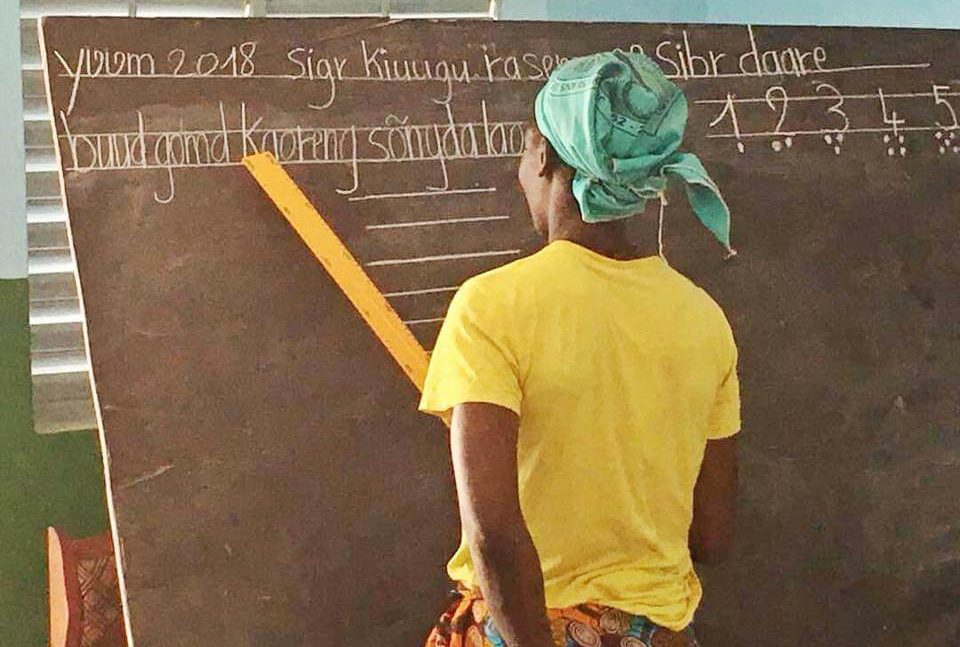 yʋʋm 2018 sigr kiuugu, sibr daare
buud gomd kaoreng sõngda
1 2 3 4 5